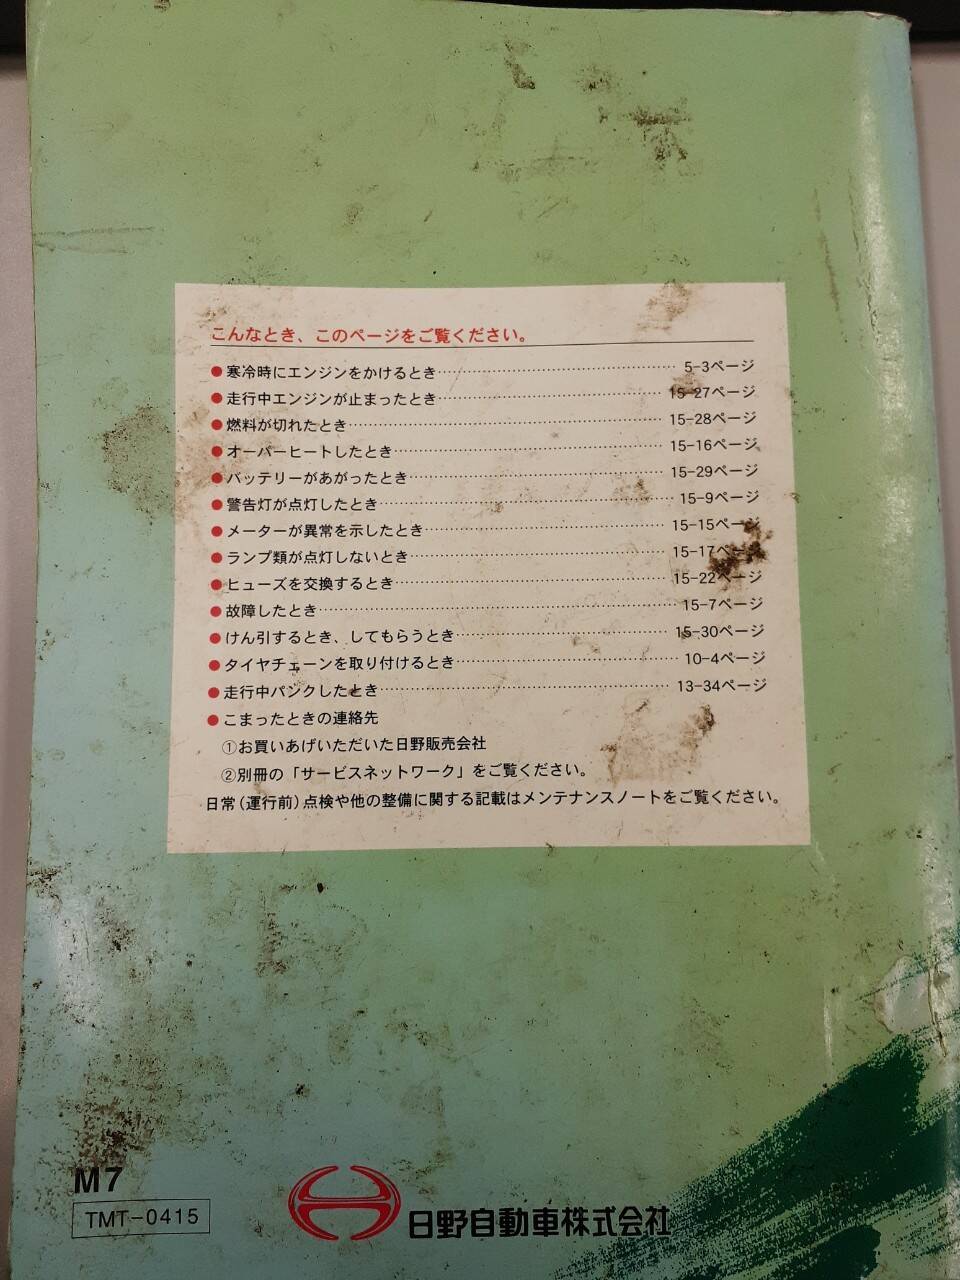 こんなとき、このページをご覧ください。
●寒冷時にエンジンをかけるとき 5-3ページ
●走行中エンジンが止まったとき 15-27ページ
●燃料が切れたとき 15-28ページ
●オーバーヒートしたとき 15-16ページ
●バッテリーがあがったとき 15-29ページ
●警告灯が点灯したとき 15-9ページ
●メーターが異常を示したとき 15-15ページ
●ランプ類が点灯しないとき 15-17ページ
●ヒューズを交換するとき 15-22ページ
●故障したとき 15-7ページ
●けん引するとき、してもらうとき 15-30ページ
●タイヤチェーンを取り付けるとき 10-4ページ
●走行中パンクしたとき 13-34ページ
●こまったときの連絡先
①お買いあげいただいた日野販売会社
②別冊の「サービスネットワーク」をご覧ください。
日常(運行前)点検や他の整備に関する記載はメンテナンスノートをご覧ください。
M7
TMT-0415
日野自動車株式会社